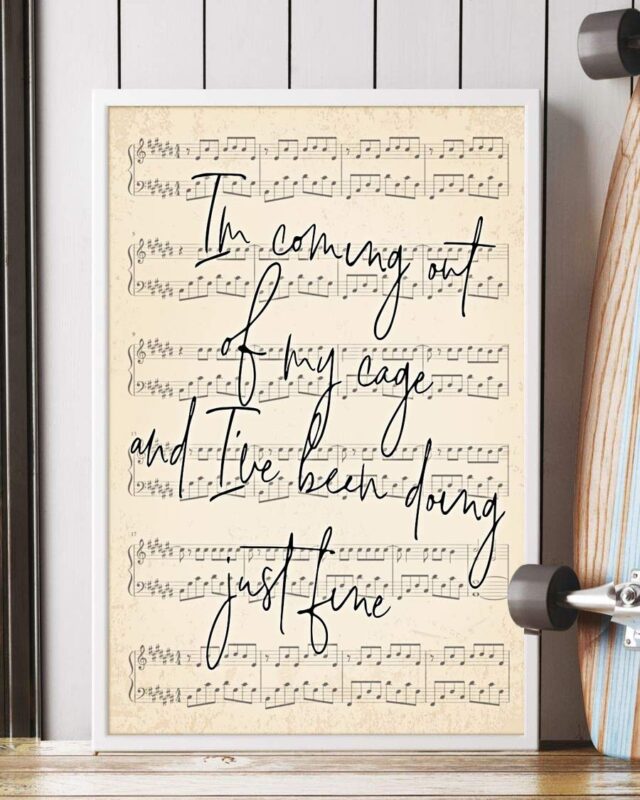 I'm coming out
of my cage
and I've been doing
just fine